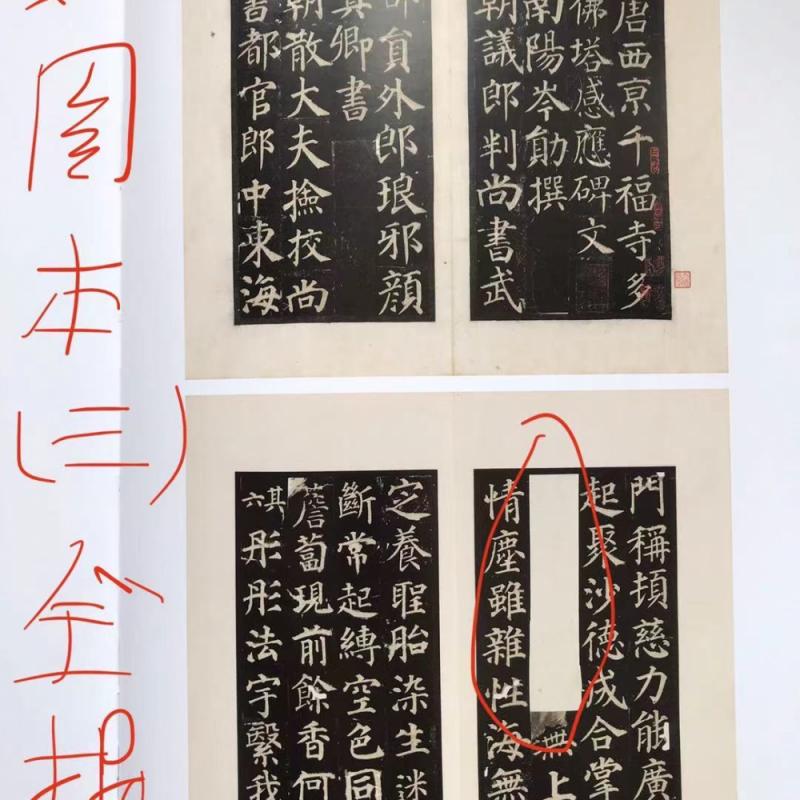 图本(三)全
唐西亰千福寺多
佛塔感應碑文
南陽岑勛撰
朝議郎判尚書武
部員外郎琅邪顏
真卿書
朝散大夫撿挍尚
書都官郎中東海
門稱頓慈力能廣
起聚沙德成合掌
無上
情塵雖雜性海無
定養聖胎染生迷
斷常起縛空色同
薝蔔現前餘香何
其六彤彤法宇繄我